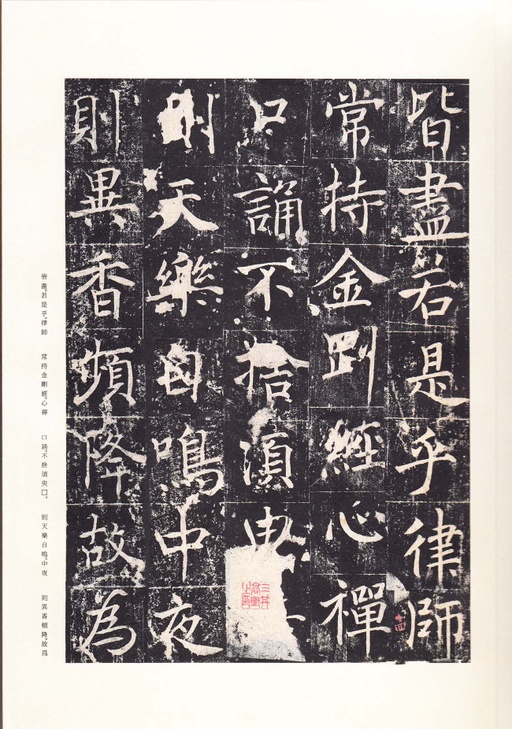 皆盡若是乎律師
常持金剛經心禪
口誦不捨須臾
則天樂自鳴中夜
則異香頻降故為
皆盡。若是乎。律師　常持金剛經。心禪　口誦。不捨須臾□。　則天樂自鳴。中夜　則異香頻降。故為